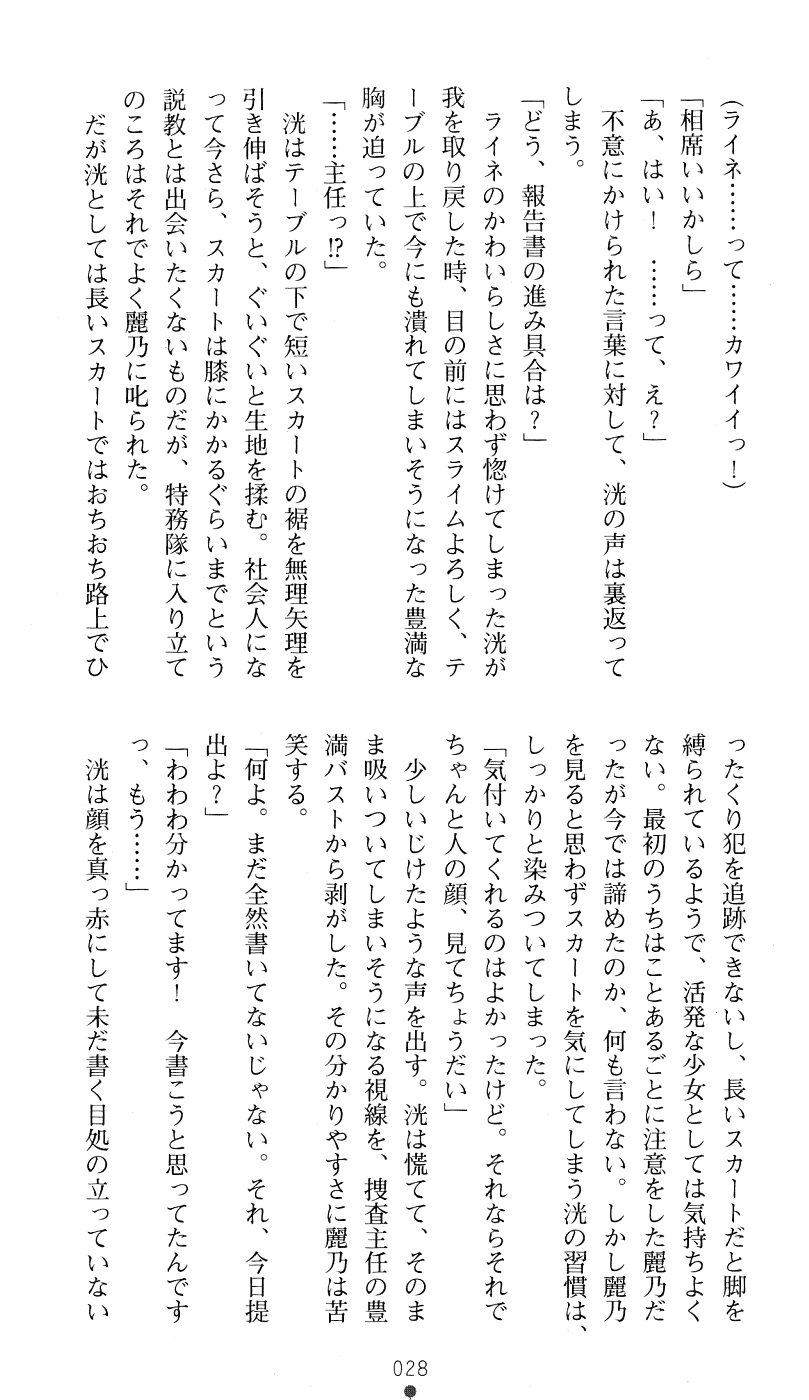 (ライネ……って……カワイイっ！)
「相席いいかしら」
「あ、はい！　……って、え？」
　不意にかけられた言葉に対して、洸の声は裏返って
しまう。
「どう、報告書の進み具合は？」
　ライネのかわいらしさに思わず惚けてしまった洸が
我を取り戻した時、目の前にはスライムよろしく、テ
ーブルの上で今にも潰れてしまいそうになった豊満な
胸が迫っていた。
「……主任っ!?」
　洸はテーブルの下で短いスカートの裾を無理矢理を
引き伸ばそうと、ぐいぐいと生地を揉む。社会人にな
って今さら、スカートは膝にかかるぐらいまでという
説教とは出会いたくないものだが、特務隊に入り立て
のころはそれでよく麗乃に叱られた。
　だが洸としては長いスカートではおちおち路上でひ
ったくり犯を追跡できないし、長いスカートだと脚を
縛られているようで、活発な少女としては気持ちよく
ない。最初のうちはことあるごとに注意をした麗乃だ
ったが今では諦めたのか、何も言わない。しかし麗乃
を見ると思わずスカートを気にしてしまう洸の習慣は、
しっかりと染みついてしまった。
「気付いてくれるのはよかったけど。それならそれで
ちゃんと人の顔、見てちょうだい」
　少しいじけたような声を出す。洸は慌てて、そのま
ま吸いついてしまいそうになる視線を、捜査主任の豊
満バストから剥がした。その分かりやすさに麗乃は苦
笑する。
「何よ。まだ全然書いてないじゃない。それ、今日提
出よ？」
「わわわ分かってます！　今書こうと思ってたんです
っ、もう……」
　洸は顔を真っ赤にして未だ書く目処の立っていない
028